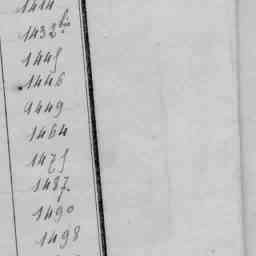 1414
1432 bis
1445
1446
1449
1464
1475
1487
1490
1498